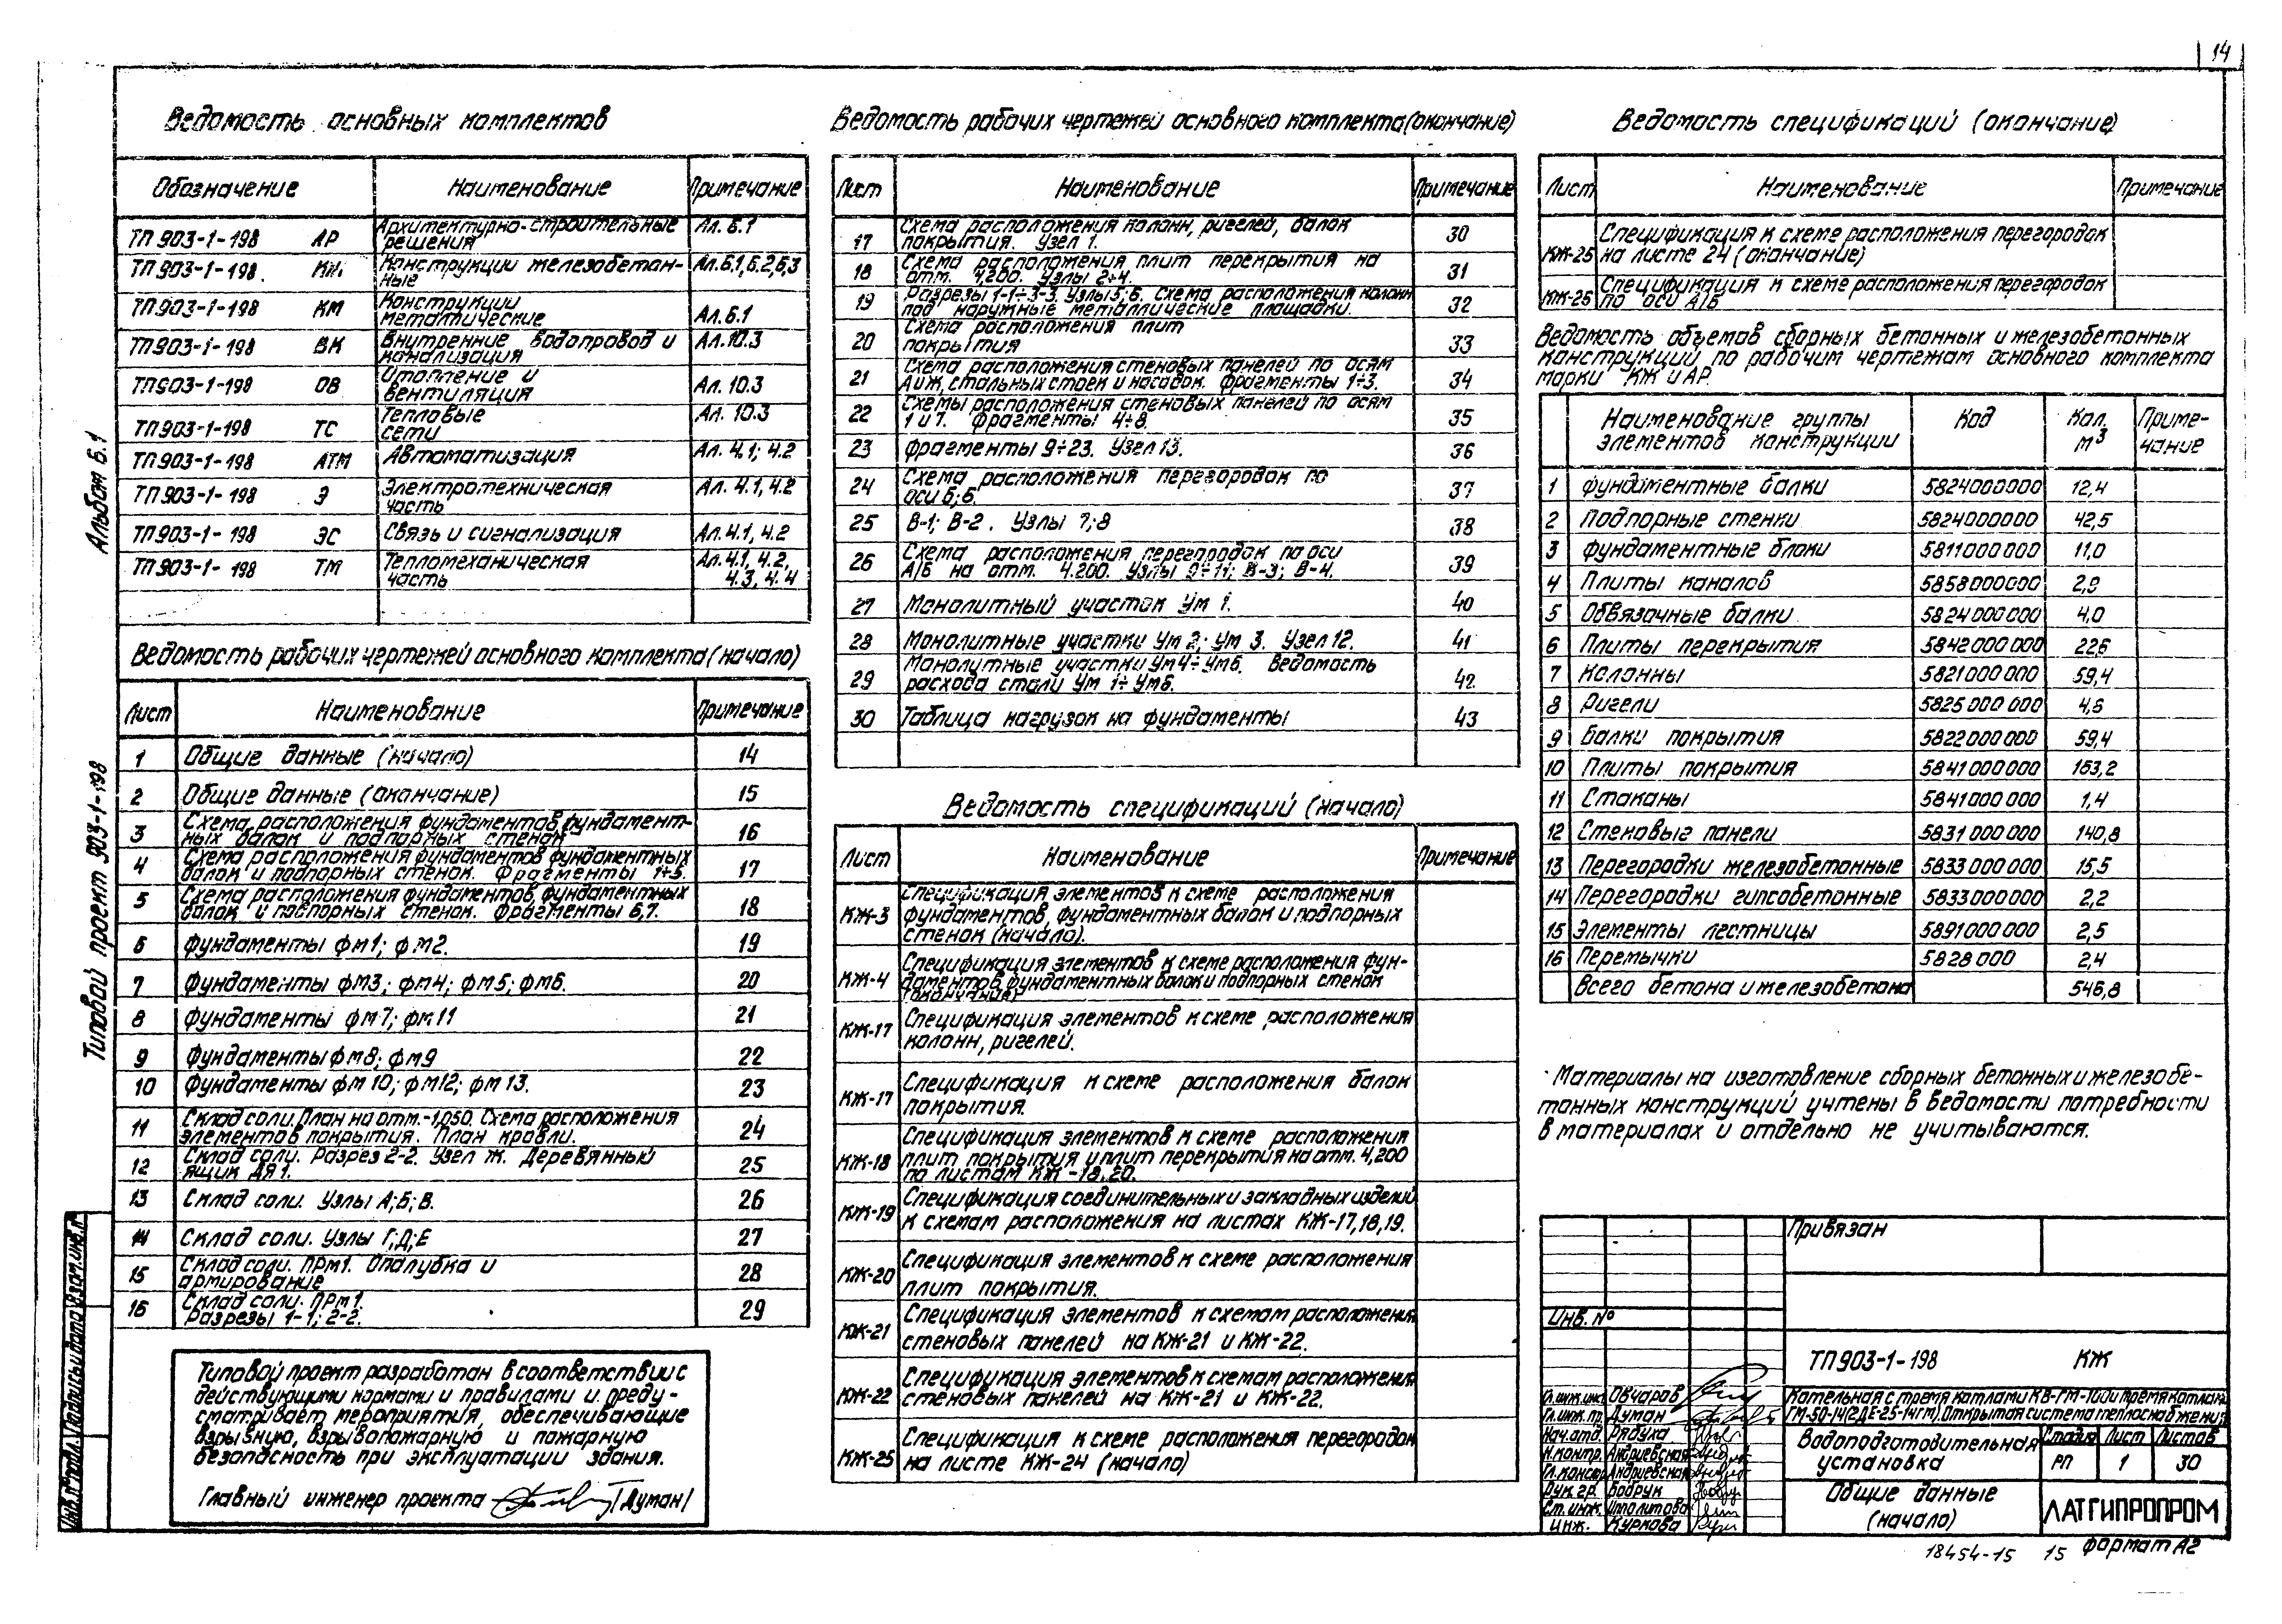 14
Альбом 6.1
Типовой проект 903-1-198
Ведомость основных комплектов
Обозначение Наименование Примечание
ТП 903-1-198 АР Архитектурно-строительные решения Ал. 6.1
ТП 903-1-198 КЖ Конструкции железобетон-ные Ал. 6.1, 6.2, 6.3
ТП 903-1-198 КМ Конструкции металлические Ал. 6.1
ТП 903-1-198 ВК Внутренние водопровод и канализация Ал. 10.3
ТП 903-1-198 ОВ Отопление и вентиляция Ал. 10.3
ТП 903-1-198 ТС Тепловые сети Ал. 10.3
ТП 903-1-198 АТМ Автоматизация Ал. 4.1; 4.2
ТП 903-1-198 Э Электротехническая часть Ал. 4.1, 4.2
ТП 903-1-198 ЭС Связь и сигнализация Ал. 4.1, 4.2
ТП 903-1-198 ТМ Тепломеханическая часть Ал. 4.1, 4.2, 4.3, 4.4
Ведомость рабочих чертежей основного комплекта (начало)
Лист Наименование Примечание
1 Общие данные (начало) 14
2 Общие данные (окончание) 15
3 Схема расположения фундаментов, фундамент-ных балок и подпорных стенок 16
4 Схема расположения фундаментов, фундаментных балок и подпорных стенок. Фрагменты 1÷5. 17
5 Схема расположения фундаментов, фундаментных балок и подпорных стенок. Фрагменты 6, 7. 18
6 Фундаменты фм1; фм2. 19
7 Фундаменты фм3; фм4; фм5; фм6. 20
8 Фундаменты фм7; фм11 21
9 Фундаменты фм8; фм9 22
10 Фундаменты фм10; фм12; фм13. 23
11 Склад соли. План на отм. -1,050. Схема расположения элементов покрытия. План кровли. 24
12 Склад соли. Разрез 2-2. Узел Ж. Деревянный ящик ДЯ1. 25
13 Склад соли. Узлы А; Б; В. 26
14 Склад соли. Узлы Г; Д; Е 27
15 Склад соли. ПРм1. Опалубка и армирование 28
16 Склад соли. ПРм1. Разрезы 1-1; 2-2. 29
Типовой проект разработан в соответствии с
действующими нормами и правилами и преду-
сматривает мероприятия, обеспечивающие
взрывную, взрывопожарную и пожарную
безопасность при эксплуатации здания.
Главный инженер проекта /Думан/
Ведомость рабочих чертежей основного комплекта (окончание)
Лист Наименование Примечание
17 Схема расположения колонн, ригелей, балок покрытия. Узел 1. 30
18 Схема расположения плит перекрытия на отм. 4.200. Узлы 2÷4. 31
19 Разрезы 1-1÷3-3. Узлы 5; 6. Схема расположения колонн под наружные металлические площадки. 32
20 Схема расположения плит покрытия 33
21 Схема расположения стеновых панелей по осям А и Ж, стальных стоек и насадок. Фрагменты 1÷3. 34
22 Схемы расположения стеновых панелей по осям 1 и 7. Фрагменты 4÷8. 35
23 Фрагменты 9÷23. Узел 13. 36
24 Схема расположения перегородок по оси Б; 6. 37
25 В-1; В-2. Узлы 7; 8 38
26 Схема расположения перегородок по оси А/Б на отм. 4.200. Узлы 9÷11; В-3; В-4. 39
27 Монолитный участок Ум 1. 40
28 Монолитные участки Ум 2; Ум 3. Узел 12. 41
29 Монолитные участки Ум4÷Ум6. Ведомость расхода стали Ум 1÷Ум6. 42
30 Таблица нагрузок на фундаменты 43
Ведомость спецификаций (начало)
Лист Наименование Примечание
КЖ-3 Спецификация элементов к схеме расположения фундаментов, фундаментных балок и подпорных стенок (начало).
КЖ-4 Спецификация элементов к схеме расположения фун-даментов, фундаментных балок и подпорных стенок (окончание)
КЖ-17 Спецификация элементов к схеме расположения колонн, ригелей.
КЖ-17 Спецификация к схеме расположения балок покрытия.
КЖ-18 Спецификация элементов к схеме расположения плит покрытия и плит перекрытия на отм. 4,200 по листам КЖ-18,20.
КЖ-19 Спецификация соединительных и закладных изделий к схемам расположения на листах КЖ-17,18,19.
КЖ-20 Спецификация элементов к схеме расположения плит покрытия.
КЖ-21 Спецификация элементов к схемам расположения стеновых панелей на КЖ-21 и КЖ-22.
КЖ-22 Спецификация элементов к схемам расположения стеновых панелей на КЖ-21 и КЖ-22.
КЖ-25 Спецификация к схеме расположения перегородок на листе КЖ-24 (начало)
Ведомость спецификаций (окончание)
Лист Наименование Примечание
КЖ-25 Спецификация к схеме расположения перегородок на листе 24 (окончание)
КЖ-26 Спецификация к схеме расположения перегородок по оси А/Б
Ведомость объемов сборных бетонных и железобетонных
конструкций по рабочим чертежам основного комплекта
марки КЖ и АР.
Наименование группы элементов конструкции Код Кол. м³ Приме-чание
1 Фундаментные балки 5824000000 12,4
2 Подпорные стенки 5824000000 42,5
3 Фундаментные блоки 5811000000 11,0
4 Плиты каналов 5858000000 2,9
5 Обвязочные балки 5824000000 4,0
6 Плиты перекрытия 5842000000 22,6
7 Колонны 5821000000 59,4
8 Ригели 5825000000 4,6
9 Балки покрытия 5822000000 59,4
10 Плиты покрытия 5841000000 163,2
11 Стаканы 5841000000 1,4
12 Стеновые панели 5831000000 140,8
13 Перегородки железобетонные 5833000000 15,5
14 Перегородки гипсобетонные 5833000000 2,2
15 Элементы лестницы 5891000000 2,5
16 Перемычки 5828000 2,4
Всего бетона и железобетона 546,8
Материалы на изготовление сборных бетонных и железобе-
тонных конструкций учтены в ведомости потребности
в материалах и отдельно не учитываются.
Привязан
Инв. №
ТП 903-1-198 КЖ
Котельная с тремя котлами КВ-ГМ-100 и тремя котлами
ГМ-50-14(2ДЕ-25-14ГМ). Открытая система теплоснабжения
Гл. инж. инс. Овчаров
Гл. инж. пр. Думан
Нач. отд. Рядуха
Н. контр. Андриевская
Гл. констр. Андриевская
Рук. гр. Бобрук
Ст. инж. Ипполитова
Инж. Куркова
Водоподготовительная установка
Стадия Лист Листов
РП 1 30
Общие данные (начало)
ЛАТГИПРОПРОМ
18454-15 15 Формат А2
Инв. № подл. Подпись и дата Взам. инв. №